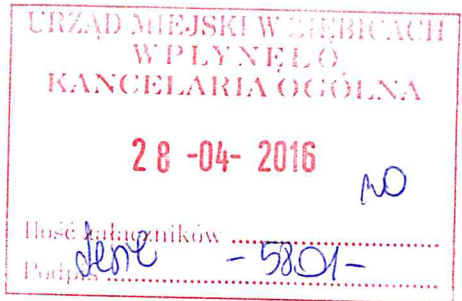 URZĄD MIEJSKI W ZIĘBICACH
WPŁYNĘŁO
KANCELARIA OGÓLNA
28 -04- 2016
Ilość załączników ..................
Podpis ..................
- 5801 -